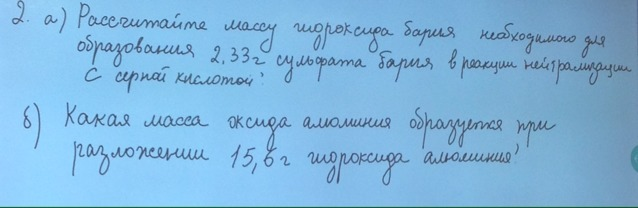 2. а) Рассчитайте массу гидроксида бария необходимого для
образования 2,33г сульфата бария в реакции нейтрализации
с серной кислотой?
б) Какая масса оксида алюминия образуется при
разложении 15,6 г гидроксида алюминия?